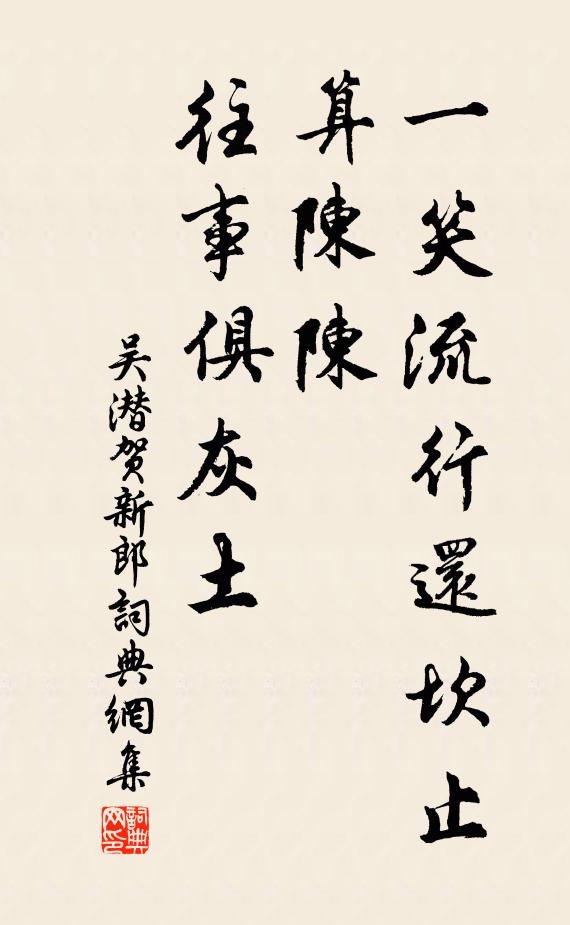 一笑流行還坎止
算陳陳
往事俱灰土
吴潜贺新郎詞典網集
詞典網印